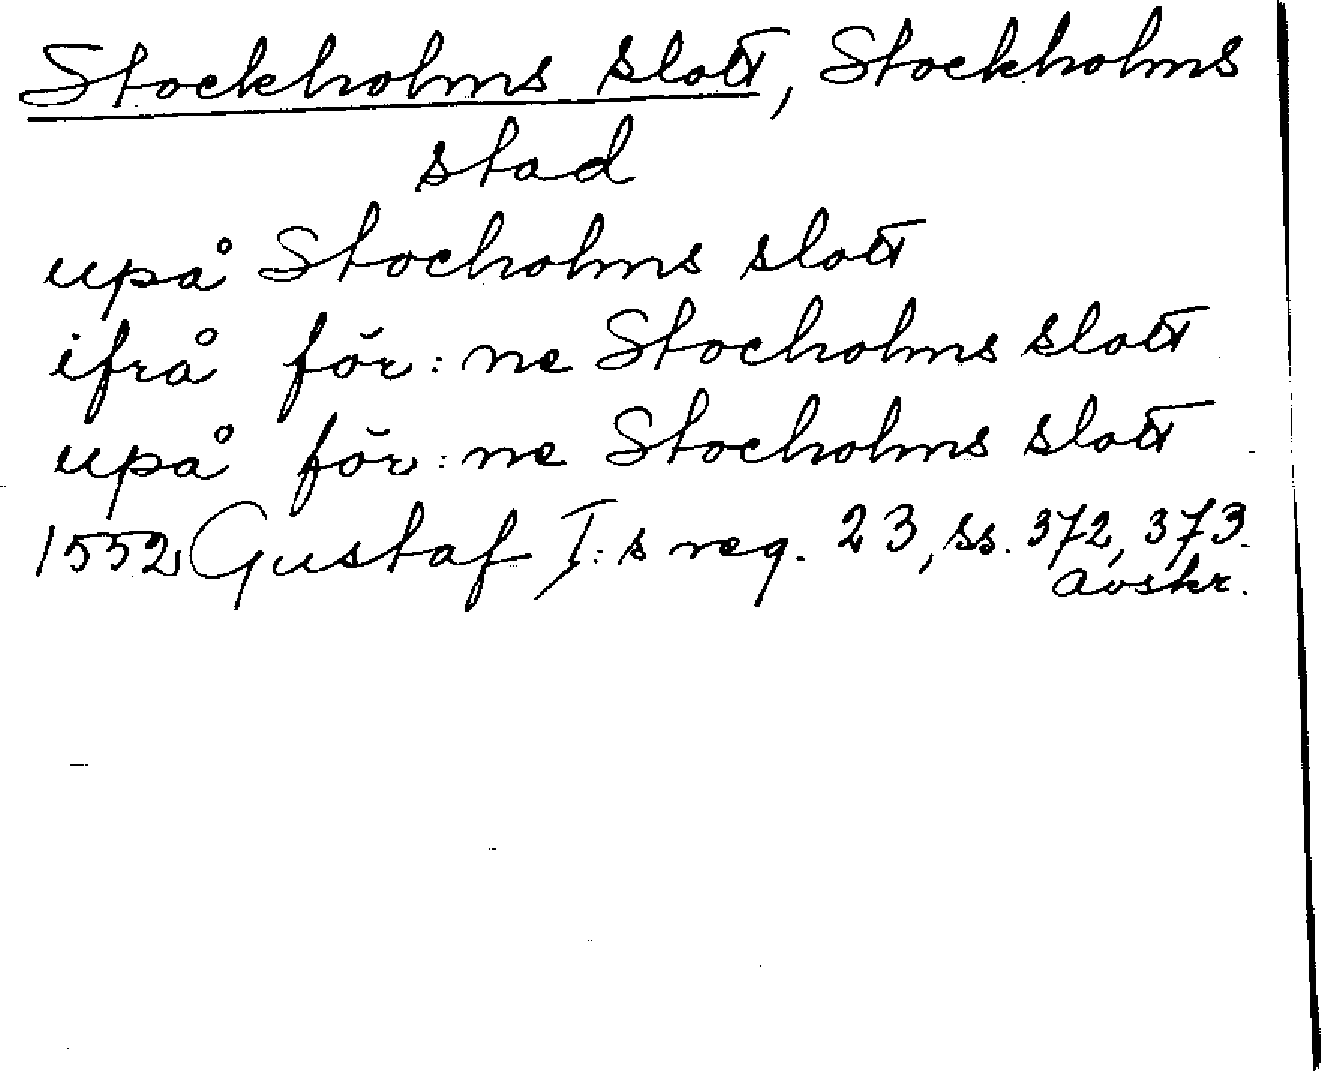 Stockholms slott, Stockholms
stad
upå Stocholms slott
ifrå för:ne Stocholms slott
upå för:ne Stocholms slott
1552 Gustaf I:s reg. 23, ss. 372, 373.
avskr.